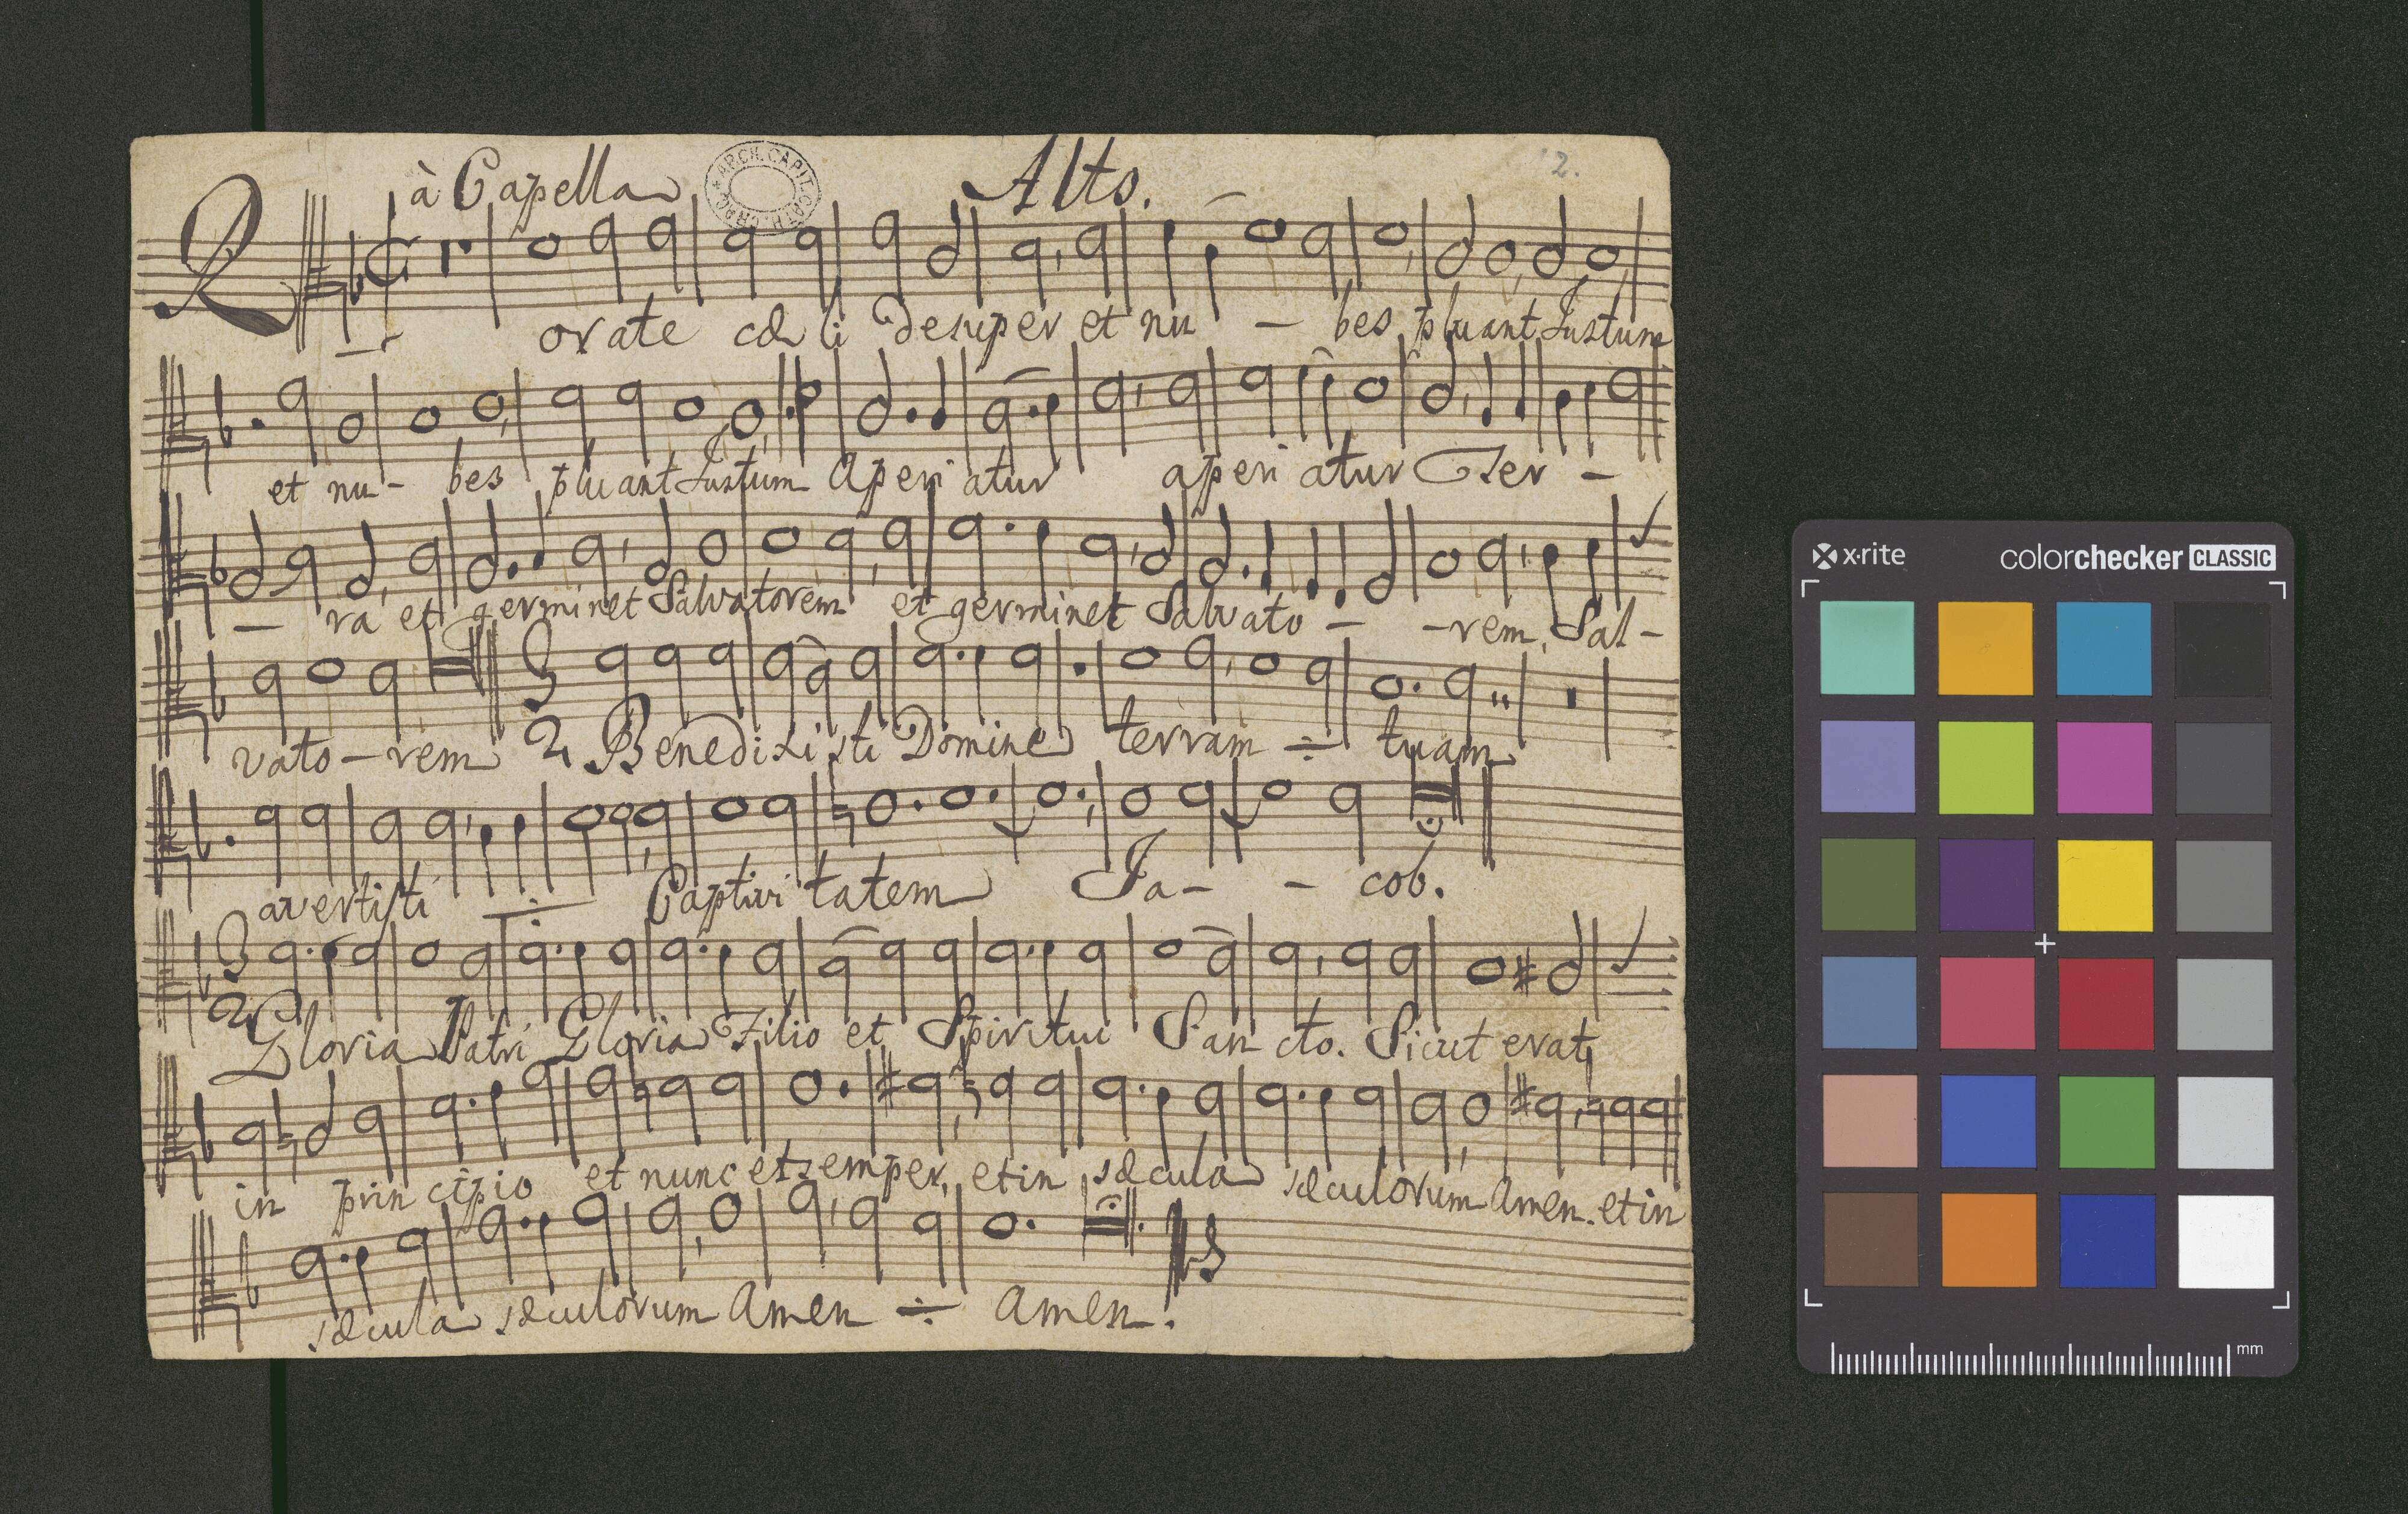 à Capella Alto. 2.
ARCH. CAPIT. CATH. CRAC.
R
orate cæli desuper et nu - bes pluant Justum
et nu - bes pluant Justum Aperiatur aperiatur Ter -
- ra et germinet Salvatorem et germinet Salvato - - rem, Sal -
vato - rem 3 2 Benedixisti Domine terram ÷ tuam
avertisti ÷ Captivitatem Ja - - cob.
3 2 Gloria Patri Gloria Filio et Spiritui Sancto. Sicut erat
in principio et nunc et semper, et in sæcula sæculorum Amen. et in
sæcula sæculorum Amen ÷ Amen.
x-rite colorchecker CLASSIC
mm